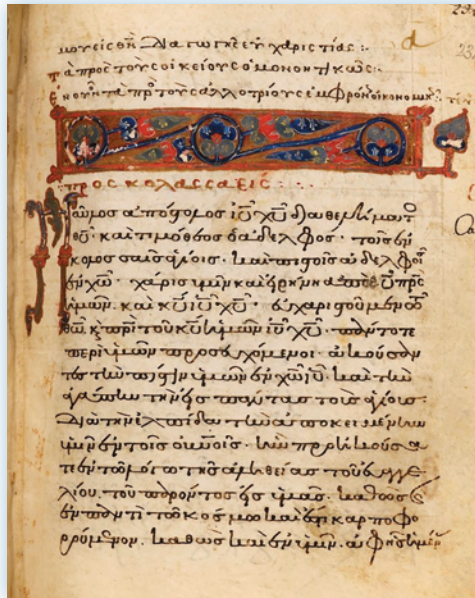 μου εἰς θ̅ν̅. Διαγωγῆς εὐχαριστίας :·
Τὰ πρὸς τοὺς οἰκείους
τὰ πρὸς τοὺς ἀλλοτρίους
πρὸς κολασσαεῖς
Παῦλος ἀπόστολος ι̅υ̅ χ̅υ̅ διὰ θελήματος
θ̅υ̅· καὶ τιμόθεος ὁ ἀδελφός· τοῖς ἐν
κολοσσαῖς ἁγίοις· καὶ πιστοῖς ἀδελφοῖς
ἐν χ̅ω̅· χάρις ὑμῖν καὶ εἰρήνη ἀπὸ θ̅υ̅ π̅ρ̅ς̅
ἡμῶν. καὶ κ̅υ̅ ι̅υ̅ χ̅υ̅· εὐχαριστοῦμεν τῶ
θ̅ω̅ κ π̅ρ̅ι̅ τοῦ κ̅υ̅ ἡμῶν ι̅υ̅ χ̅υ̅· πάντοτε
περὶ ὑμῶν προσευχόμενοι· ἀκούσαν
τες τὴν πίστιν ὑμῶν ἐν χ̅ω̅ ι̅υ̅· καὶ τὴν
ἀγάπην τὴν εἰς πάντας τοὺς ἁγίους·
Διὰ τὴν ἐλπίδα τὴν ἀποκειμένην
ὑμῖν ἐν τοῖς ο̅υ̅ν̅ο̅ι̅ς̅· ἣν προηκούσα
τε ἐν τῶ λόγω τῆς ἀληθείας τοῦ εὐαγγε
λίου. τοῦ παρόντος εἰς ὑμᾶς. καθὼς κ
ἐν παντὶ τῶ κόσμω καὶ ἔστι καρποφο
ρούμενον. καθὼς καὶ ἐν ὑμῖν. ἀφ ἧς ἡμέρ